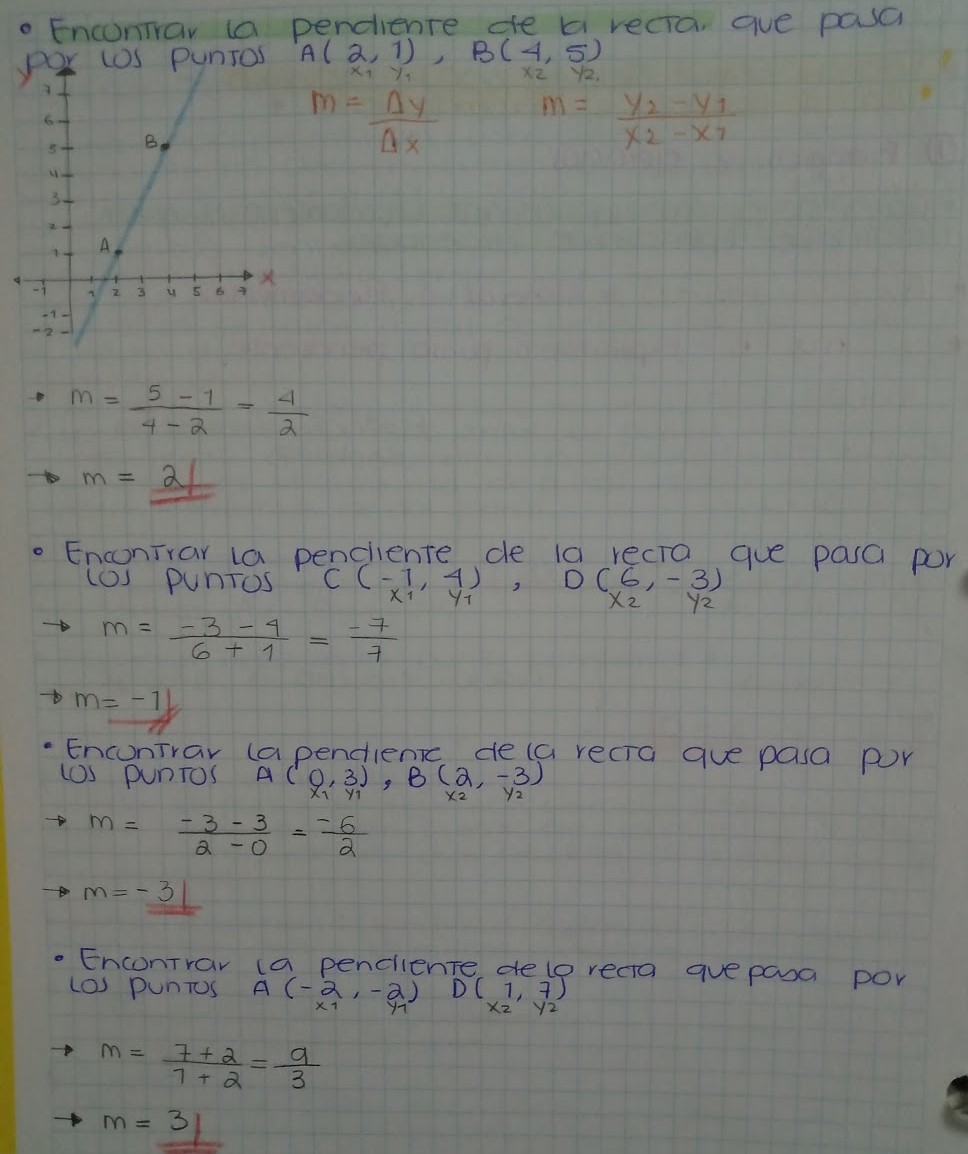 • Encontrar la pendiente de la recta que pasa
por los puntos A(2, 1), B(4, 5)
x1 y1 x2 y2
m = Δy/Δx m = y2 - y1/x2 - x1
y
7
6
5 B
4
3
2
1 A
-1 1 2 3 4 5 6 7 x
-1
-2
→ m = 5 - 1/4 - 2 = 4/2
→ m = 2
• Encontrar la pendiente de la recta que pasa por
los puntos C(-1, 4), D(6, -3)
x1 y1 x2 y2
→ m = -3 - 4/6 + 1 = -7/7
→ m = -1
• Encontrar la pendiente de la recta que pasa por
los puntos A(0, 3), B(2, -3)
x1 y1 x2 y2
→ m = -3 - 3/2 - 0 = -6/2
→ m = -3
• Encontrar la pendiente de la recta que pasa por
los puntos A(-2, -2) D(1, 7)
x1 y1 x2 y2
→ m = 7 + 2/1 + 2 = 9/3
→ m = 3